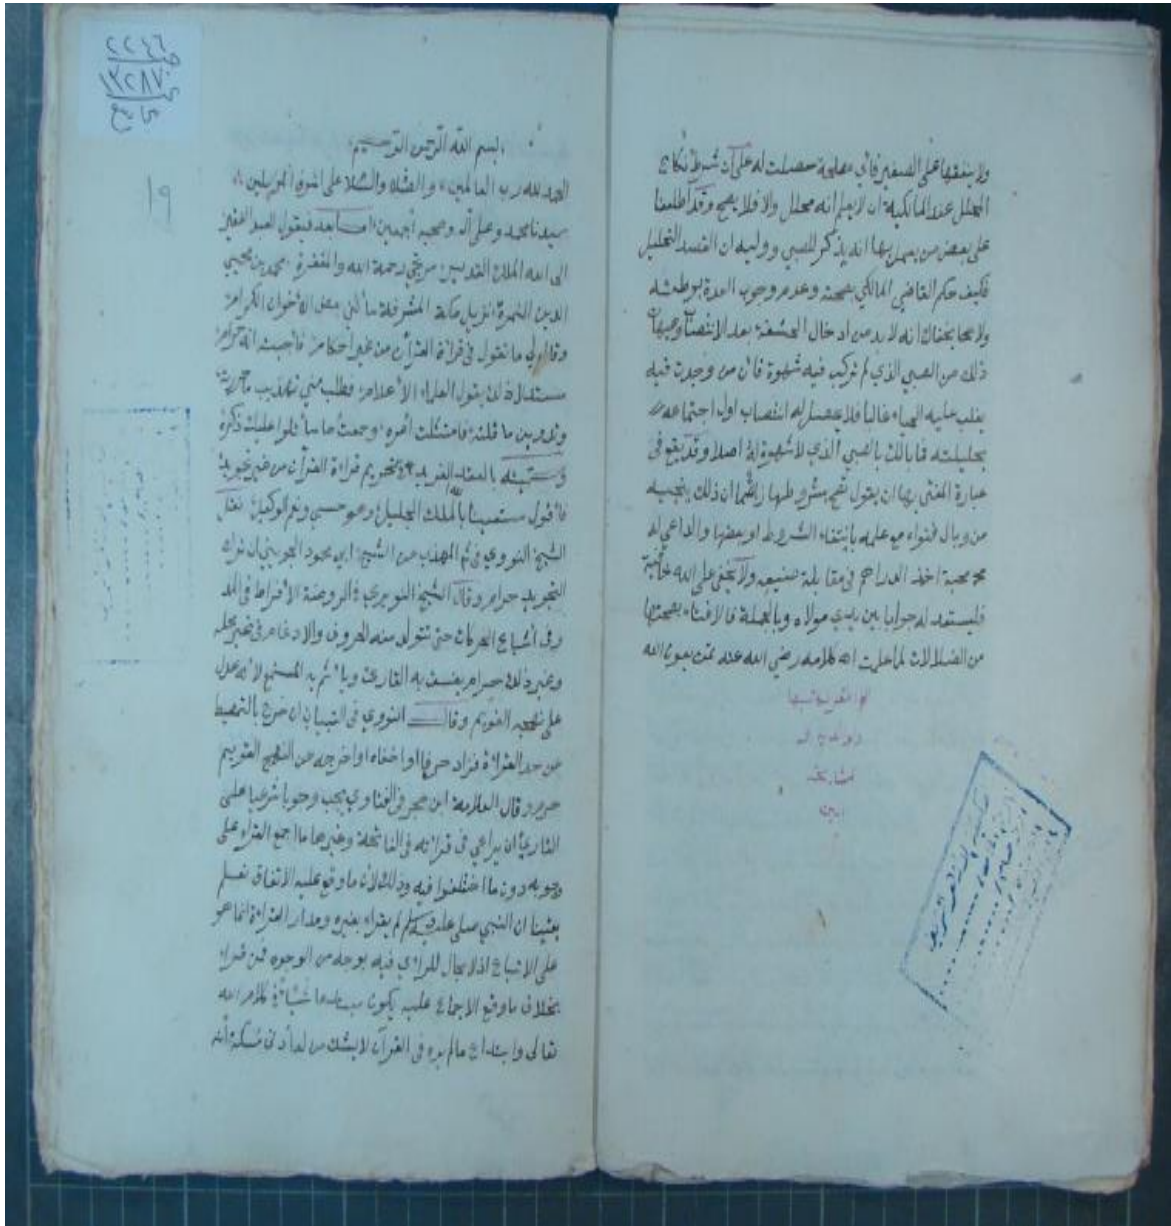 ولا ينفقها على الصغير فأي مصلحة حصلت له على أن شرط نكاح
المحلل عند المالكية ان لا يعلم انه محلل والا فلا يصح وقد اطلعنا
على بعض من يعمل بها انه يذكر للصبي ووليه ان القصد التحليل
فكيف حكم القاضي المالكي بصحته وعدم وجوب العدة بوطئه
ولا يخفاك انه لا بد من ادخال الحشفة بعد الانتصاب
ذلك من الصبي الذي لم تركب فيه شهوة فان من وجدت فيه
يغلب عليه الحياء غالبا فلا يحصل له انتصاب اول اجتماعه
بحليلته فما بالك بالصبي الذي لا شهوة له اصلا وقد يقع في
عبارة المفتي بها ان يقول تصح بشروطها زاعما ان ذلك ينجيه
من وبال فتواه مع علمه بانتفاء الشروط او بعضها والداعي له
محبة اخذ الدراهم في مقابلة صنيعه ولا يخفى على الله خافية
فليستعد له جوابا بين يدي مولاه وبالجملة فالافتاء بصحتها
من الضلالات لما علمت اه كلامه رضي الله عنه تمت بعون الله
امين
٢٢٤٦
١٩
بسم الله الرحمن الرحيم
الحمد لله رب العالمين والصلاة والسلام على اشرف المرسلين
سيدنا محمد وعلى آله وصحبه اجمعين اما بعد فيقول العبد الفقير
الى الله الملك القدير مرتجي رحمة الله والمغفرة محمد بن محيي
الدين النمرة نزيل مكة المشرفة سألني بعض الاخوان الكرام
وقال لي ما تقول في قراءة القرآن من غير احكام فأجبت انه حرام
مستدلا في ذلك بقول العلماء الاعلام فطلب مني تهذيب ما حررته
وتدوين ما قلته فامتثلت أمره وجمعت ما سأتلوا عليك ذكره
وسميته بالعقد الفريد في تحريم قراءة القرآن من غير تجويد
فأقول مستعينا بالله الملك الجليل وهو حسبي ونعم الوكيل نقل
الشيخ النووي في المهذب عن الشيخ ابي محمود الجويني ان ترك
التجويد حرام وقال الشيخ النويري في الروضة الافراط في المد
وفي اشباع الحركات حتى تتولد منه الحروف والادغام في غير محله
وغير ذلك حرام يفسق به القارئ ويأثم به المستمع لانه عدل
على نهجه القويم وقال النووي في التبيان ان خرج بالتمطيط
عن حد القراءة فزاد حرفا او اخفاه او اخرجه عن النهج القويم
حرم وقال العلامة ابن حجر في الفتاوي يجب وجوبا شرعيا على
القارئ أن يراعي في قراءته في الفاتحة وغيرها ما اجمع القراء على
وجوبه دون ما اختلفوا فيه وذلك لان ما وقع عليه الاتفاق نعلم
يقينا ان النبي صلى الله عليه وسلم لم يقراء بغيره ومدار القراءة انما هو
على الاتباع اذ لا مجال للراي فيه بوجه من الوجوه فمن قراء
بخلاف ما وقع الاجماع عليه يكون مبتدعا شيئا في كلام الله
تعالى وابتداع مالم يرد في القرآن لا يشك من له أدنى مسكة أنه